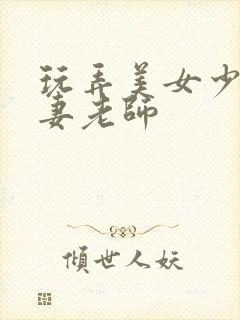 玩弄美女少
妻老師
傾世人妖